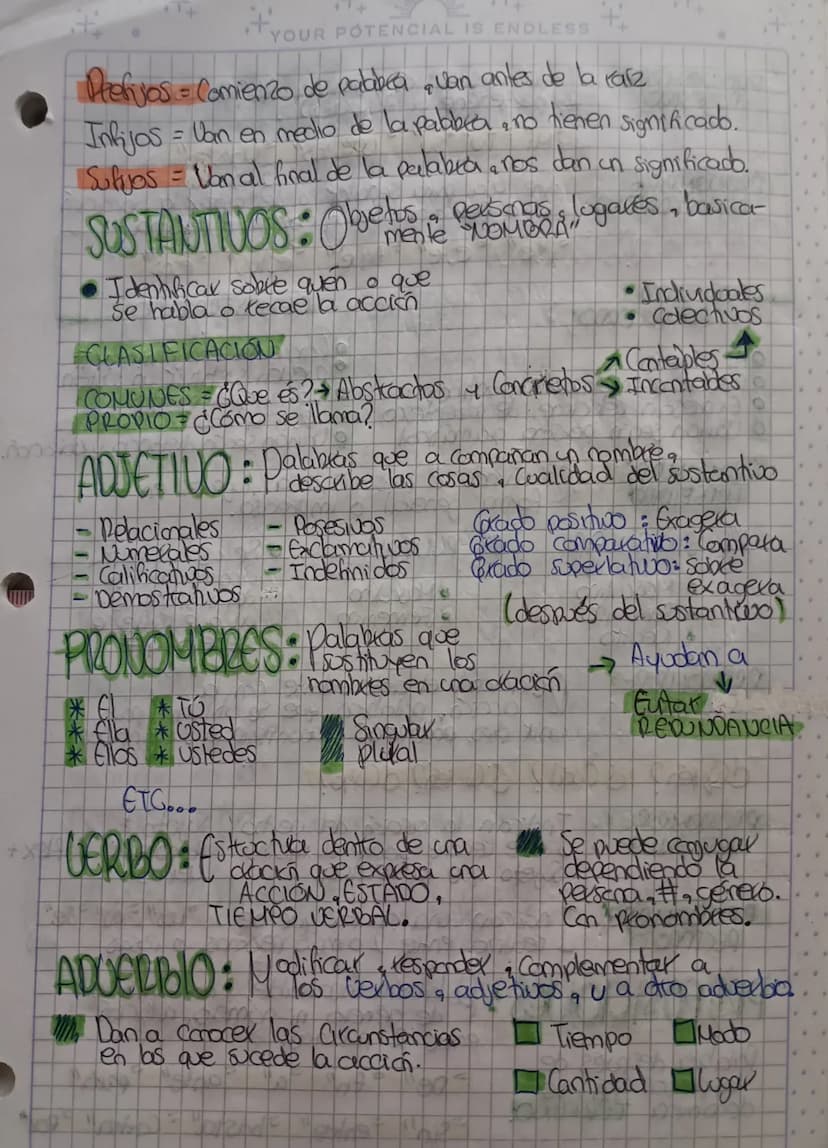 YOUR POTENCIAL IS ENDLESS
Prefijos = Comienzo de palabra, van antes de la raíz
Infijos = Van en medio de la palabra, no tienen significado.
Sufijos = Van al final de la palabra, nos dan un significado.
SUSTANTIVOS: Objetos, personas, lugares, basica-
mente "NOMBRA"
• Identificar sobre quién o que
se habla o recae la acción
• Individuales
• Colectivos
CLASIFICACIÓN
COMUNES = ¿Que és? → Abstractos y Concretos
↗ Contables ↑
↘ Incontables
PROPIO = ¿Cómo se llama?
ADJETIVO: Palabras que acompañan un nombre,
describe las cosas, Cualidad del sustantivo
- Relacionales
- Numerales
- Calificativos
- Demostrativos
- Posesivos
- Exclamativos
- Indefinidos
Grado positivo: Exagera
Grado comparativo: Compara
Grado superlativo: Sobre
exagera
(después del sustantivo)
PRONOMBRES: Palabras que
sustituyen los
nombres en una oración
→ Ayudan a
↓
Evitar
REDUNDANCIA
* El
* Ella
* Ellos
* TÚ
* Usted
* Ustedes
Singular
plural
ETC...
VERBO: Estructura dentro de una
oración que expresa una
ACCIÓN, ESTADO,
TIEMPO VERBAL.
Se puede conjugar
dependiendo la
persona, #, género.
Con pronombres.
ADVERBIO: Modificar, responder, complementar a
los verbos, adjetivos, y a otro adverbio.
Dan a conocer las circunstancias
en las que sucede la acción.
Tiempo
Modo
Cantidad
Lugar